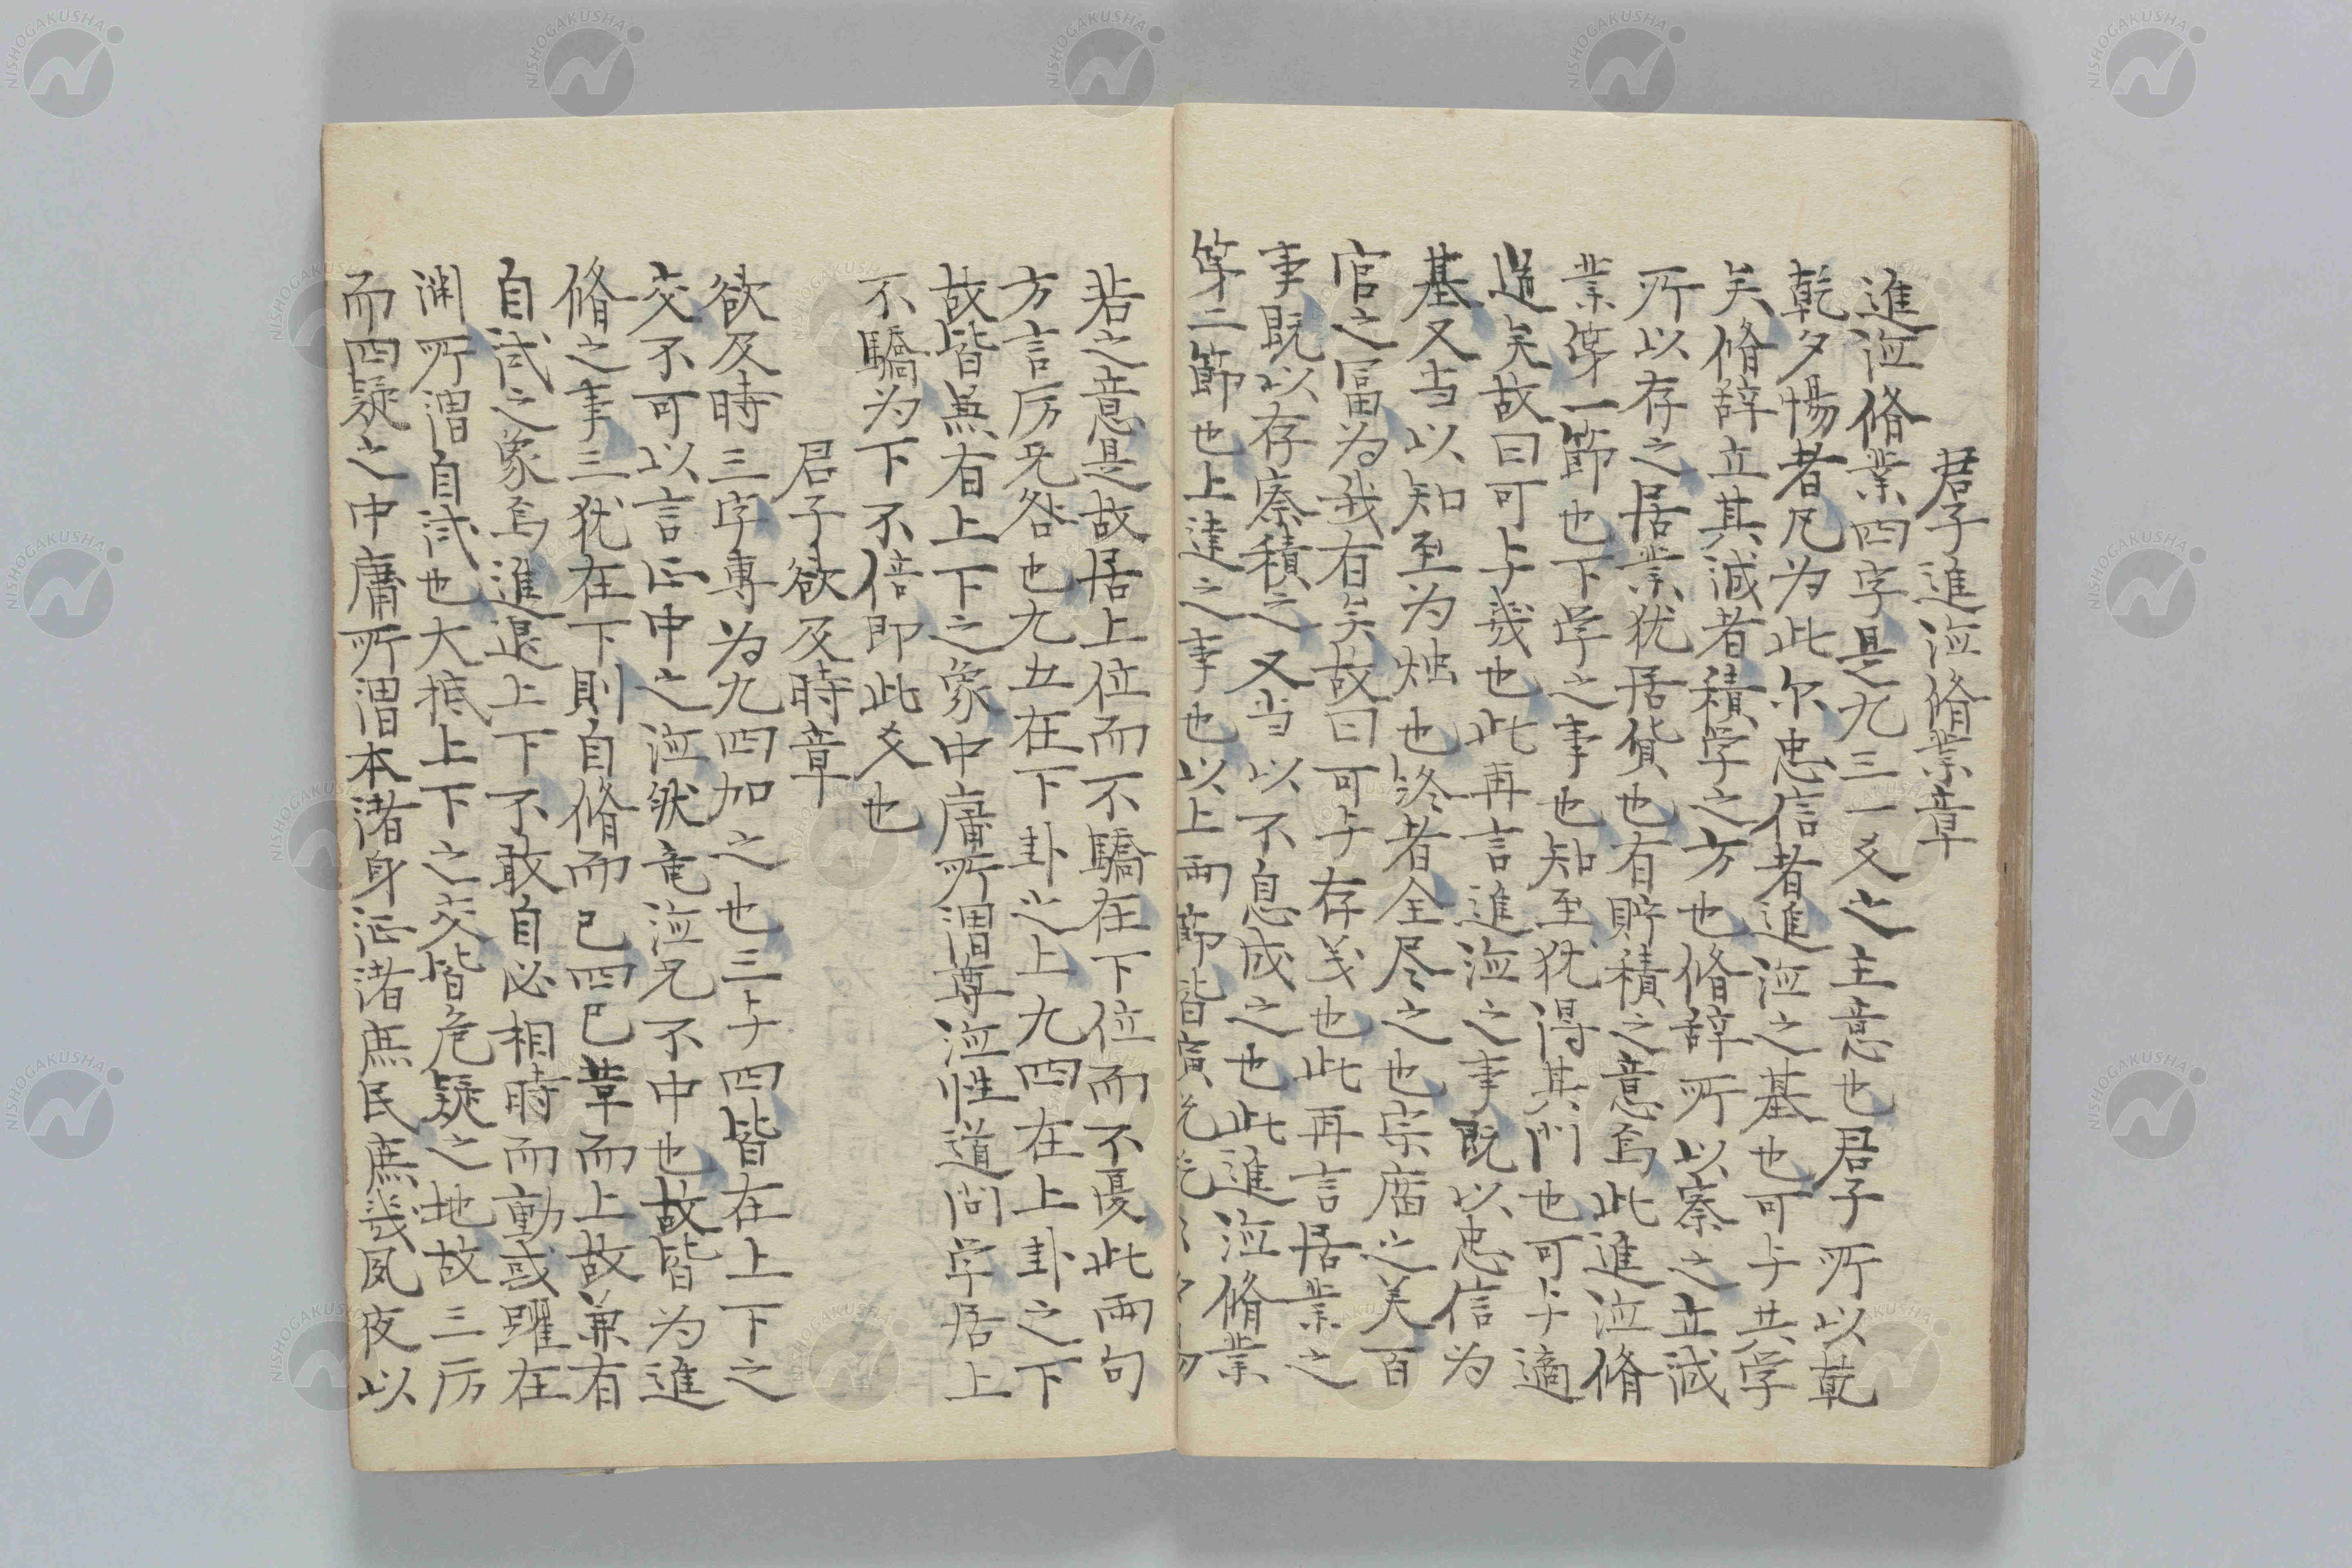 君子進泣脩業章
進泣脩業四字是九三一爻之主意也君子所以乾
乾夕惕者凡为此尔忠信者進泣之基也可与共学
矣脩辞立其誠者積学之方也脩辞所以察之立誠
所以存之居業犹居貨也有貯積之意焉此進泣脩
業第一節也下学之事也知至犹得其門也可与適
道矣故曰可与幾也此再言進泣之事既以忠信为
基又当以知至为烛也終者全尽之也宗庿之美百
官之冨为我有矣故曰可与存义也此再言居業之
事既以存察積之又当以不息成之也此進泣脩業
第二節也上達之事也以上两節皆
若之意是故居上位而不驕在下位而不憂此两句
方言厉无咎也九五在下卦之上九四在上卦之下
故皆無有上下之象中庸所谓尊泣性道问学居上
不驕为下不倍即此爻也
君子欲及時章
欲及時三字專为九四加之也三与四皆在上下之
交不可以言正中之泣然竜泣无不中也故皆为進
脩之事三犹在下則自脩而已四已革而上故兼有
自試之象焉進退上下不敢自必相時而動或躍在
渊所谓自試也大抵上下之交皆危疑之地故三厉
而四疑之中庸所谓本諸身徵諸庶民庶幾夙夜以